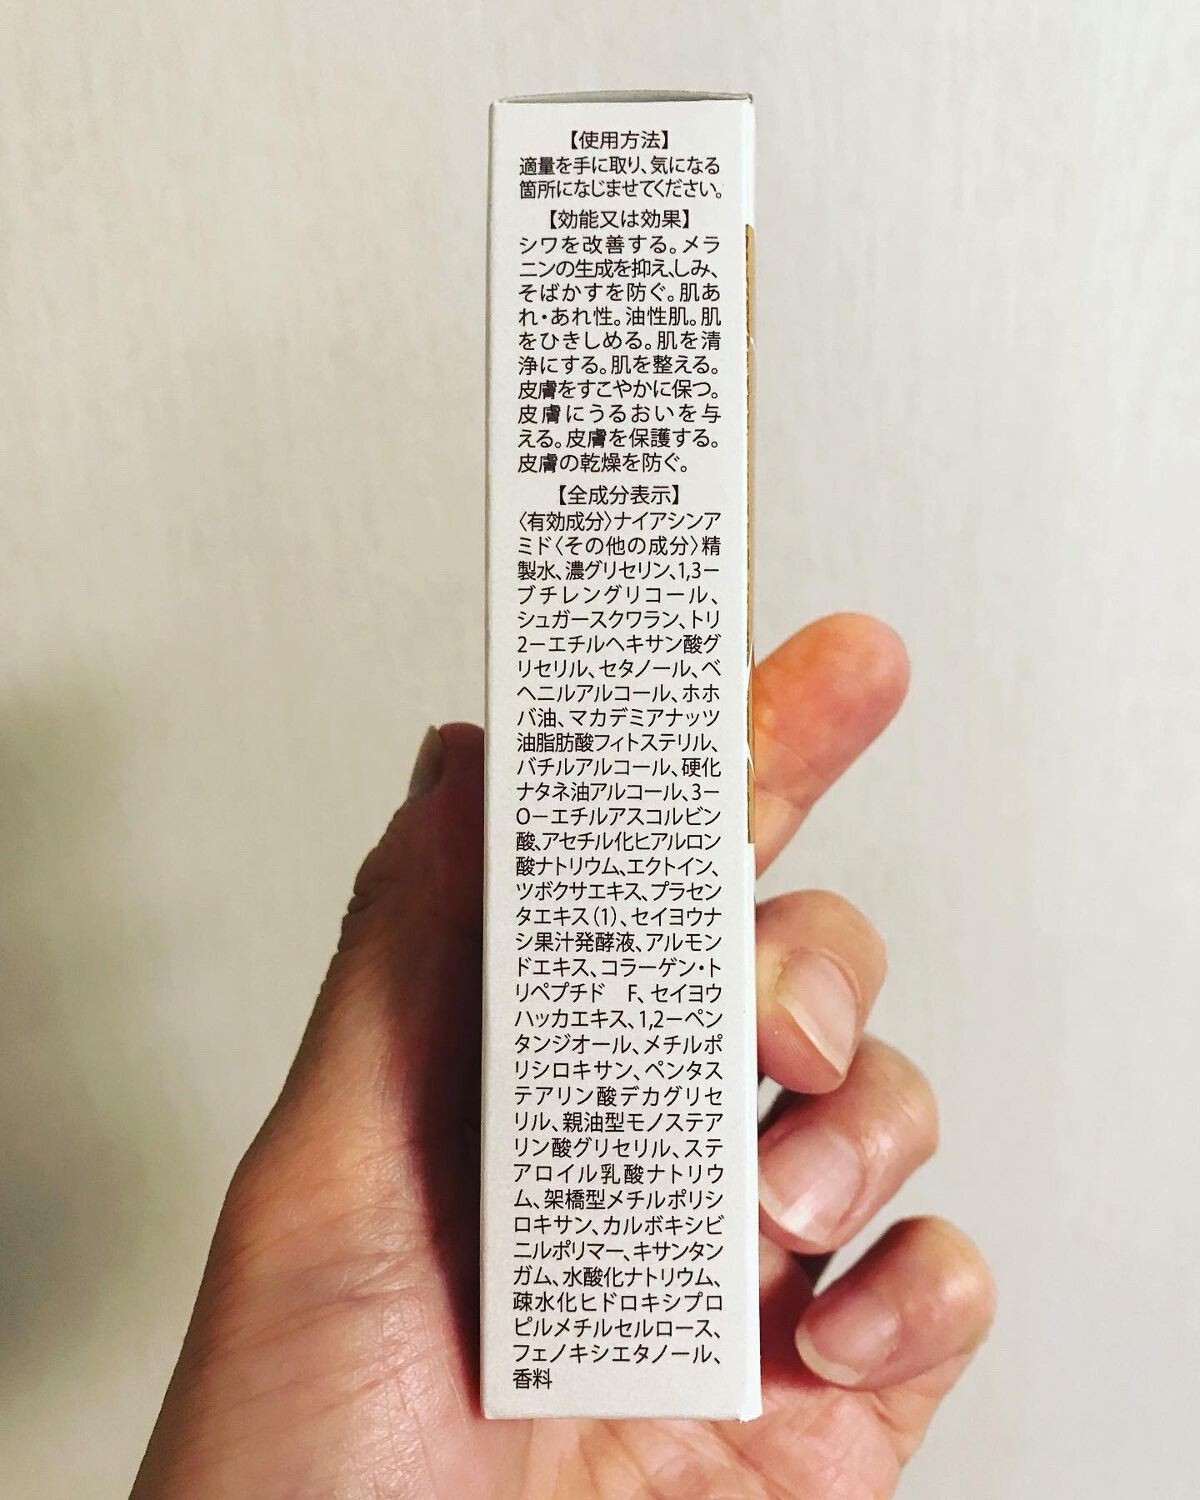 【使用方法】
適量を手に取り、気になる
箇所になじませてください。
【効能又は効果】
シワを改善する。メラ
ニンの生成を抑え、しみ、
そばかすを防ぐ。肌あ
れ・あれ性。油性肌。肌
をひきしめる。肌を清
浄にする。肌を整える。
皮膚をすこやかに保つ。
皮膚にうるおいを与
える。皮膚を保護する。
皮膚の乾燥を防ぐ。
【全成分表示】
〈有効成分〉ナイアシンア
ミド〈その他の成分〉精
製水、濃グリセリン、1,3－
ブチレングリコール、
シュガースクワラン、トリ
2－エチルヘキサン酸グ
リセリル、セタノール、ベ
ヘニルアルコール、ホホ
バ油、マカデミアナッツ
油脂肪酸フィトステリル、
バチルアルコール、硬化
ナタネ油アルコール、3－
O－エチルアスコルビン
酸、アセチル化ヒアルロン
酸ナトリウム、エクトイン、
ツボクサエキス、プラセン
タエキス(1)、セイヨウナ
シ果汁発酵液、アルモン
ドエキス、コラーゲン・ト
リペプチド　F、セイヨウ
ハッカエキス、1,2－ペン
タンジオール、メチルポ
リシロキサン、ペンタス
テアリン酸デカグリセ
リル、親油型モノステア
リン酸グリセリル、ステ
アロイル乳酸ナトリウ
ム、架橋型メチルポリシ
ロキサン、カルボキシビ
ニルポリマー、キサンタン
ガム、水酸化ナトリウム、
疎水化ヒドロキシプロ
ピルメチルセルロース、
フェノキシエタノール、
香料